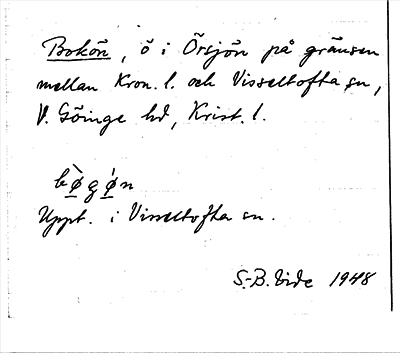 Bokön, ö i Örsjön på gränsen
mellan Kron. l. och Visseltofta sn,
V. Göinge hd, Krist. l.
bø̀gǿn
Uppt. i Visseltofta sn.
S.-B. Vide 1948